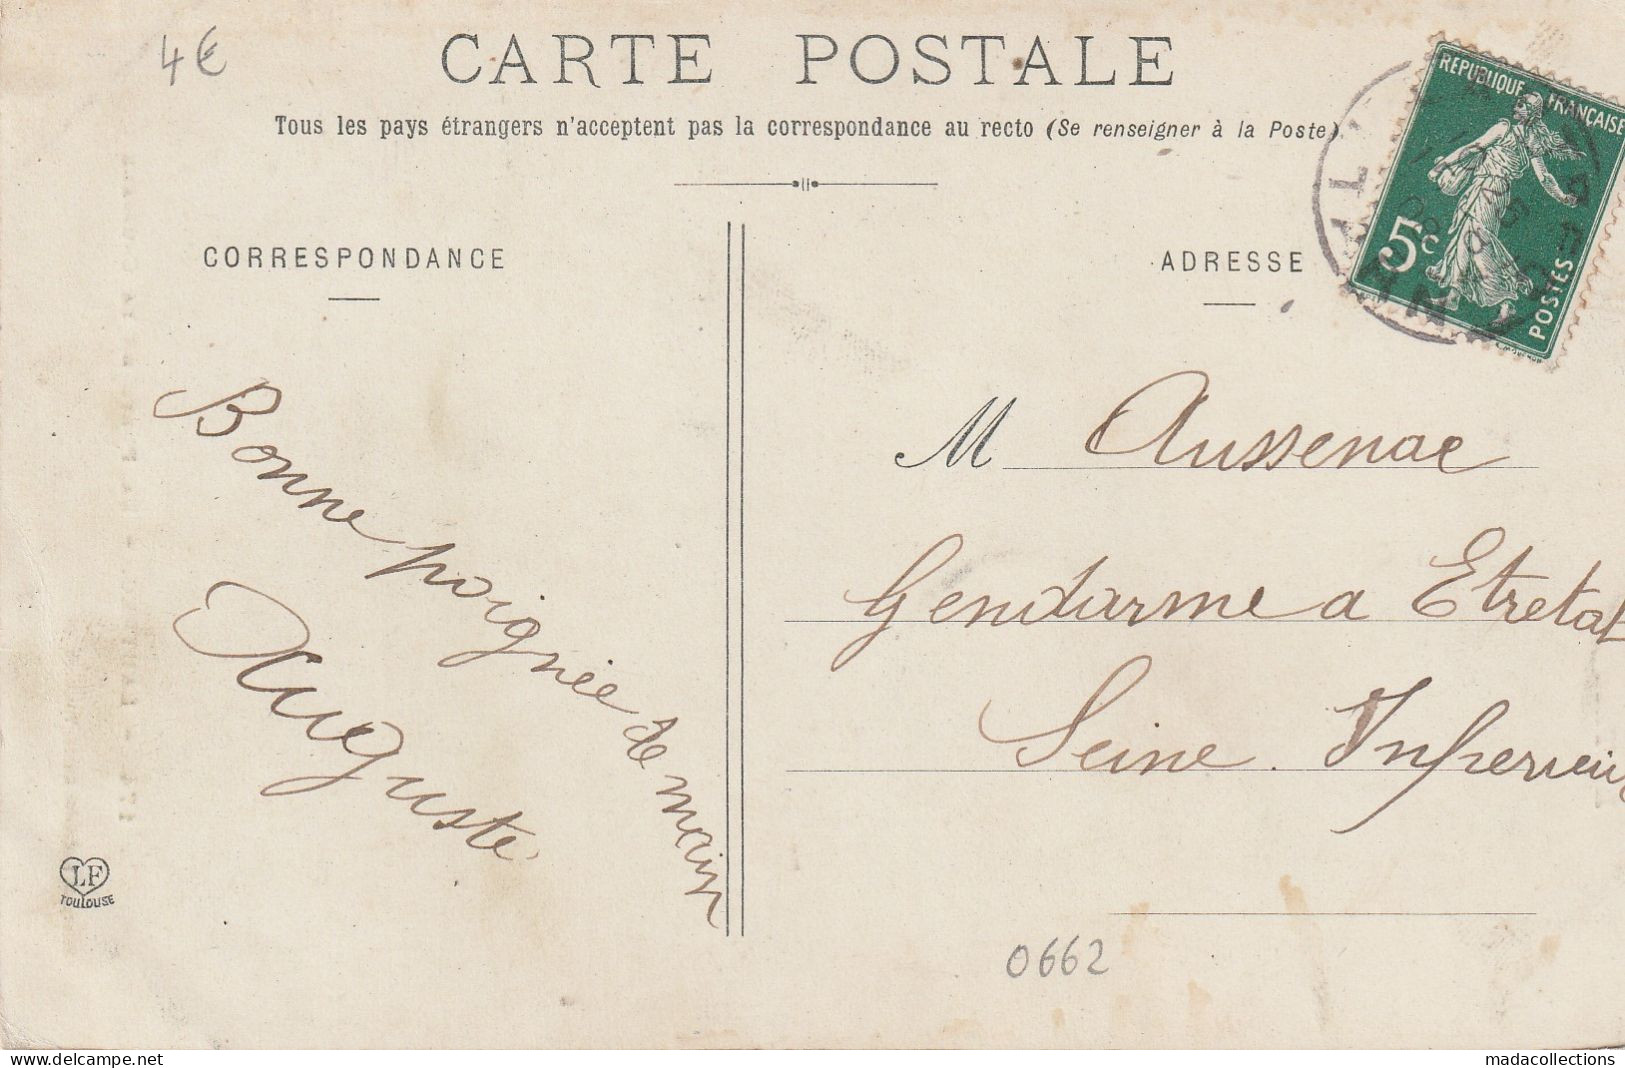 4€
CARTE POSTALE
Tous les pays étrangers n'acceptent pas la correspondance au recto (Se renseigner à la Poste)
REPUBLIQUE FRANÇAISE
5c
POSTES
CORRESPONDANCE
ADRESSE
Bonne poignée de main
Auguste
M Aussenac
Gendarme a Etretat
Seine Inferieur
LF
TOULOUSE
0662
www.delcampe.net
madacollections